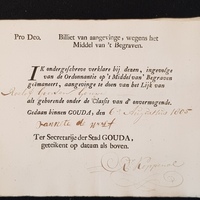 Pro Deo. Billiet van aangevinge, wegens het
Middel van 't Begraven.
IK ondergeschreve verklare bij deezen, ingevolge
van de Ordonnantie op 't Middel van' Begraven
geëmaneert, aangevinge te doen van het Lijk van
als gehorende onder de Classis van d'onvermogende.
Gedaan binnen GOUDA, den 6 Augustus 1805
Ter Secretarije der Stad GOUDA,
geteikent op datum als boven.